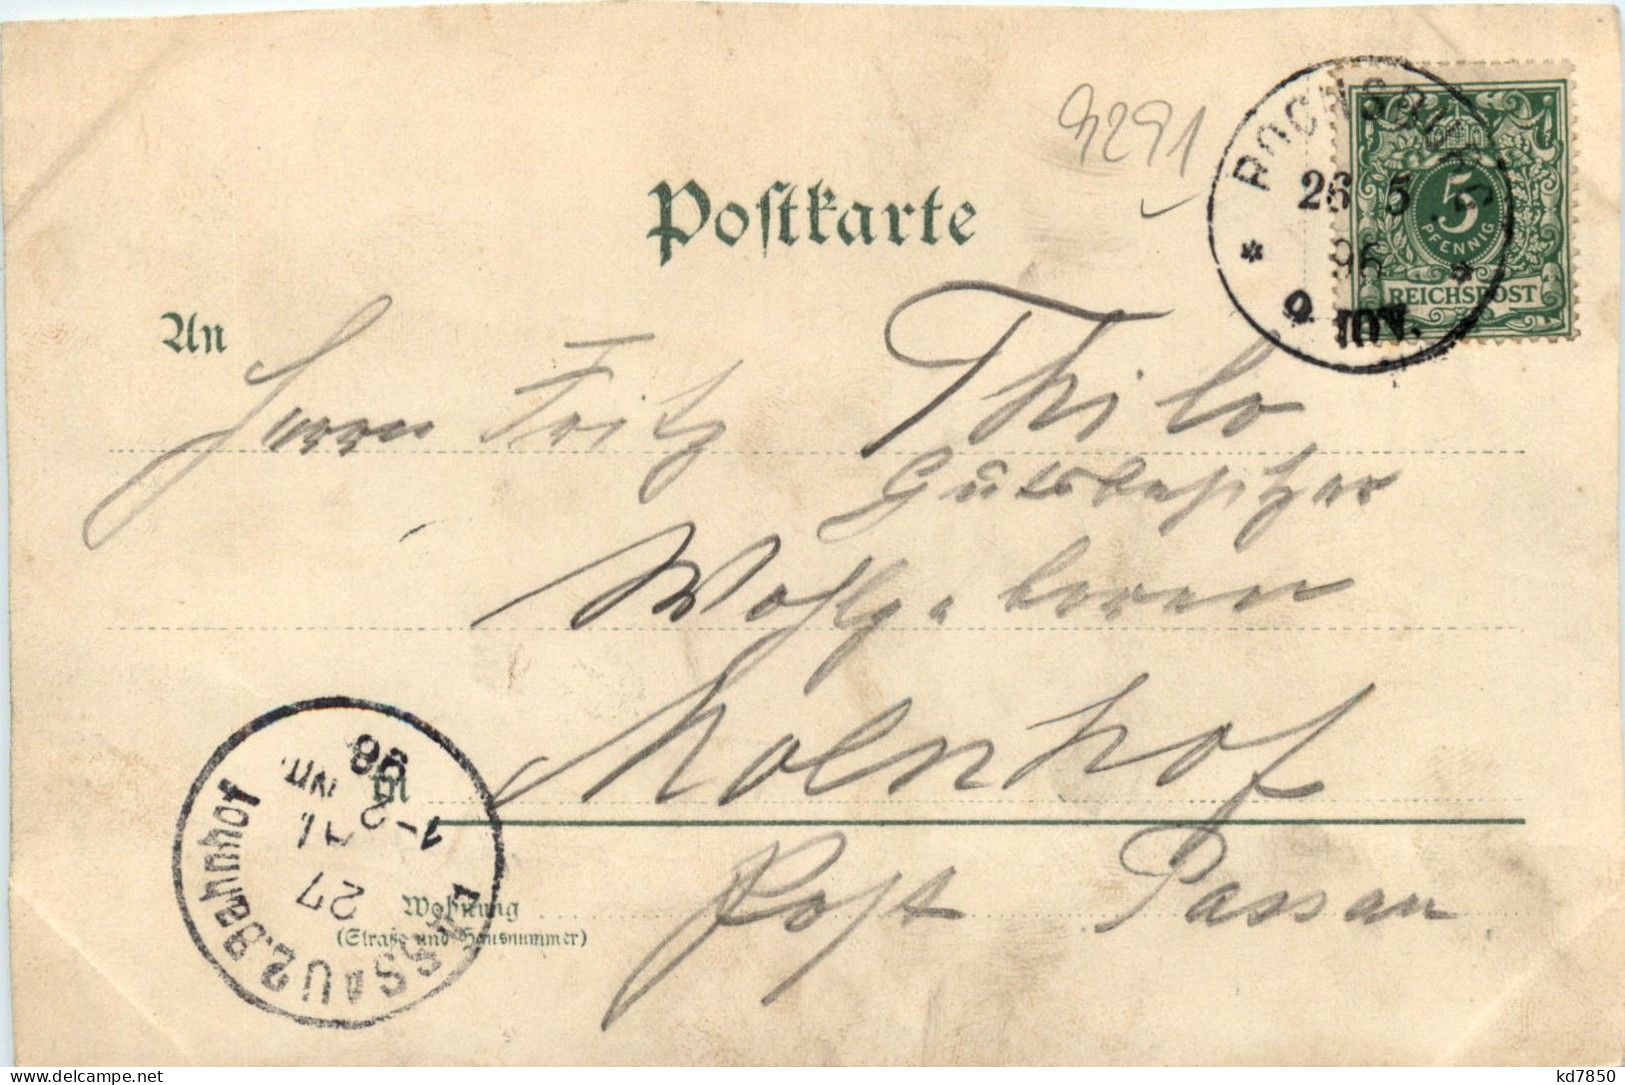 9291
Postkarte
ROCHSBURG
26 5
96
9-10V.
5
PFENNIG
REICHSPOST
An
Herrn Fritz Thilo
Gutsbesitzer
Wohlgeboren
in
Post Passau
Wohnung
(Straße und Hausnummer)
PASSAU 2. Bahnhof
27
1-2 Nm.
96
kd7850